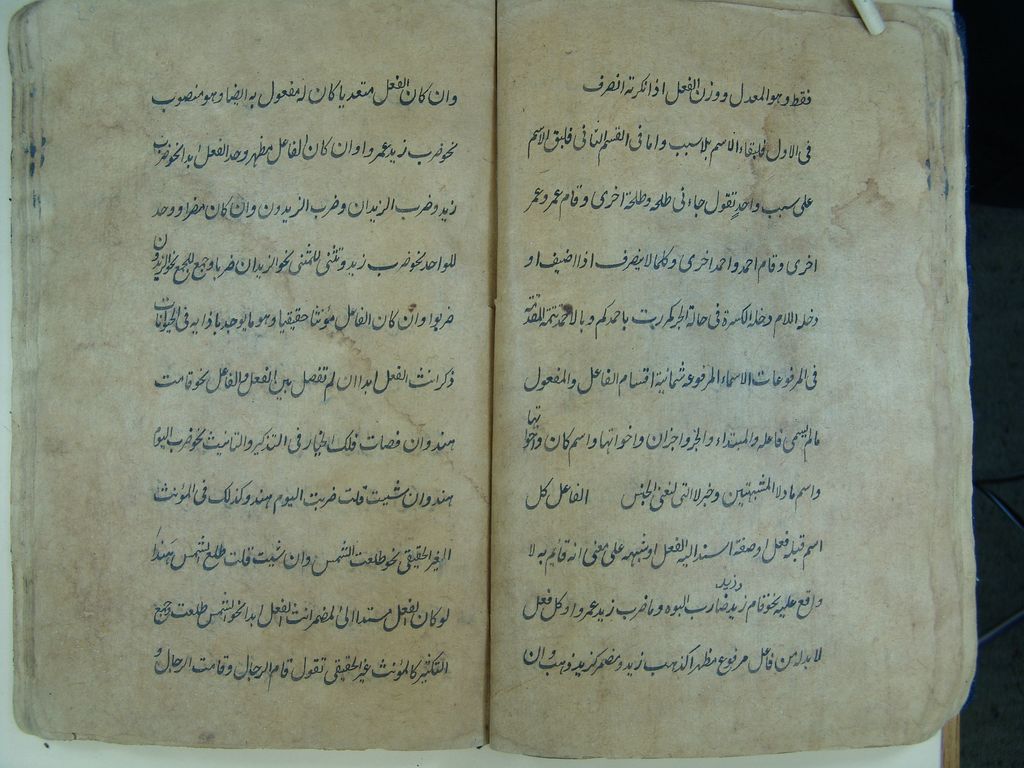 فقط وهو المعدل ووزن الفعل اذا نكرته انصرف
فى الاول فلبقاء الاسم بلا سبب واما فى القسم الثانى فلبق الاسم
على سبب واحد تقول جائنى طلحه وطلحة اخرى وقام عمر وعمر
اخرى وقام احمد واحمد اخرى وكلما لا ينصرف اذا اضيف او
دخله اللام دخله الكسرة فى حالة الجر كمررت باحمدكم وبالاحمد تمة المقدمة
فى المرفوعات الاسماء المرفوعه ثمانية اقسام الفاعل والمفعول
مالم يسمى فاعله والمبتداء والخبر واخبران واخواتها واسم كان واخواتها
واسم ما ولا المشبهتين وخبر لا التى لنفى الجنس الفاعل كل
اسم قبله فعل او صفة اسند اليه الفعل او شبهه على معنى انه قائم به لا
وقع عليه نحو قام زيد وزيد ضارب ابوه وما ضرب زيد عمروا وكل فعل
لابد له من فاعل مرفوع مظهرا كذهب زيد ومضمر كزيد ذهب وان
وان كان الفعل متعديا كان له مفعول به ايضا وهو منصوب
نحو ضرب زيد عمروا وان كان الفاعل مظهر وحد الفعل ابدا نحو ضرب
زيد وضرب الزيدان وضرب الزيدون وان كان مضمرا ووحد
للواحد نحو ضرب زيد وتثنى للمثنى نحو الزيدان ضربا وجمع للجمع نحو الزيدون
ضربوا وان كان الفاعل مؤنثا حقيقيا وهو ما يوجد باذائه فى الحيوانات
ذكر انث الفعل ابدا ان لم تفصل بين الفعل والفاعل نحو قامت
هند وان فصلت فلك الخيار فى التذكير والتانيث نحو ضرب اليوم
هند وان شيت قلت ضربت اليوم هند وكذلك فى المؤنث
الغير الحقيقى نحو طلعت الشمس وان شيت قلت طلع الشمس هذا
لو كان الفعل مسندا الى المضمر انث الفعل ابدا نحو الشمس طلعت وجمع
التكثير كالمؤنث غير الحقيقى تقول قام الرجال وقامت الرجال و